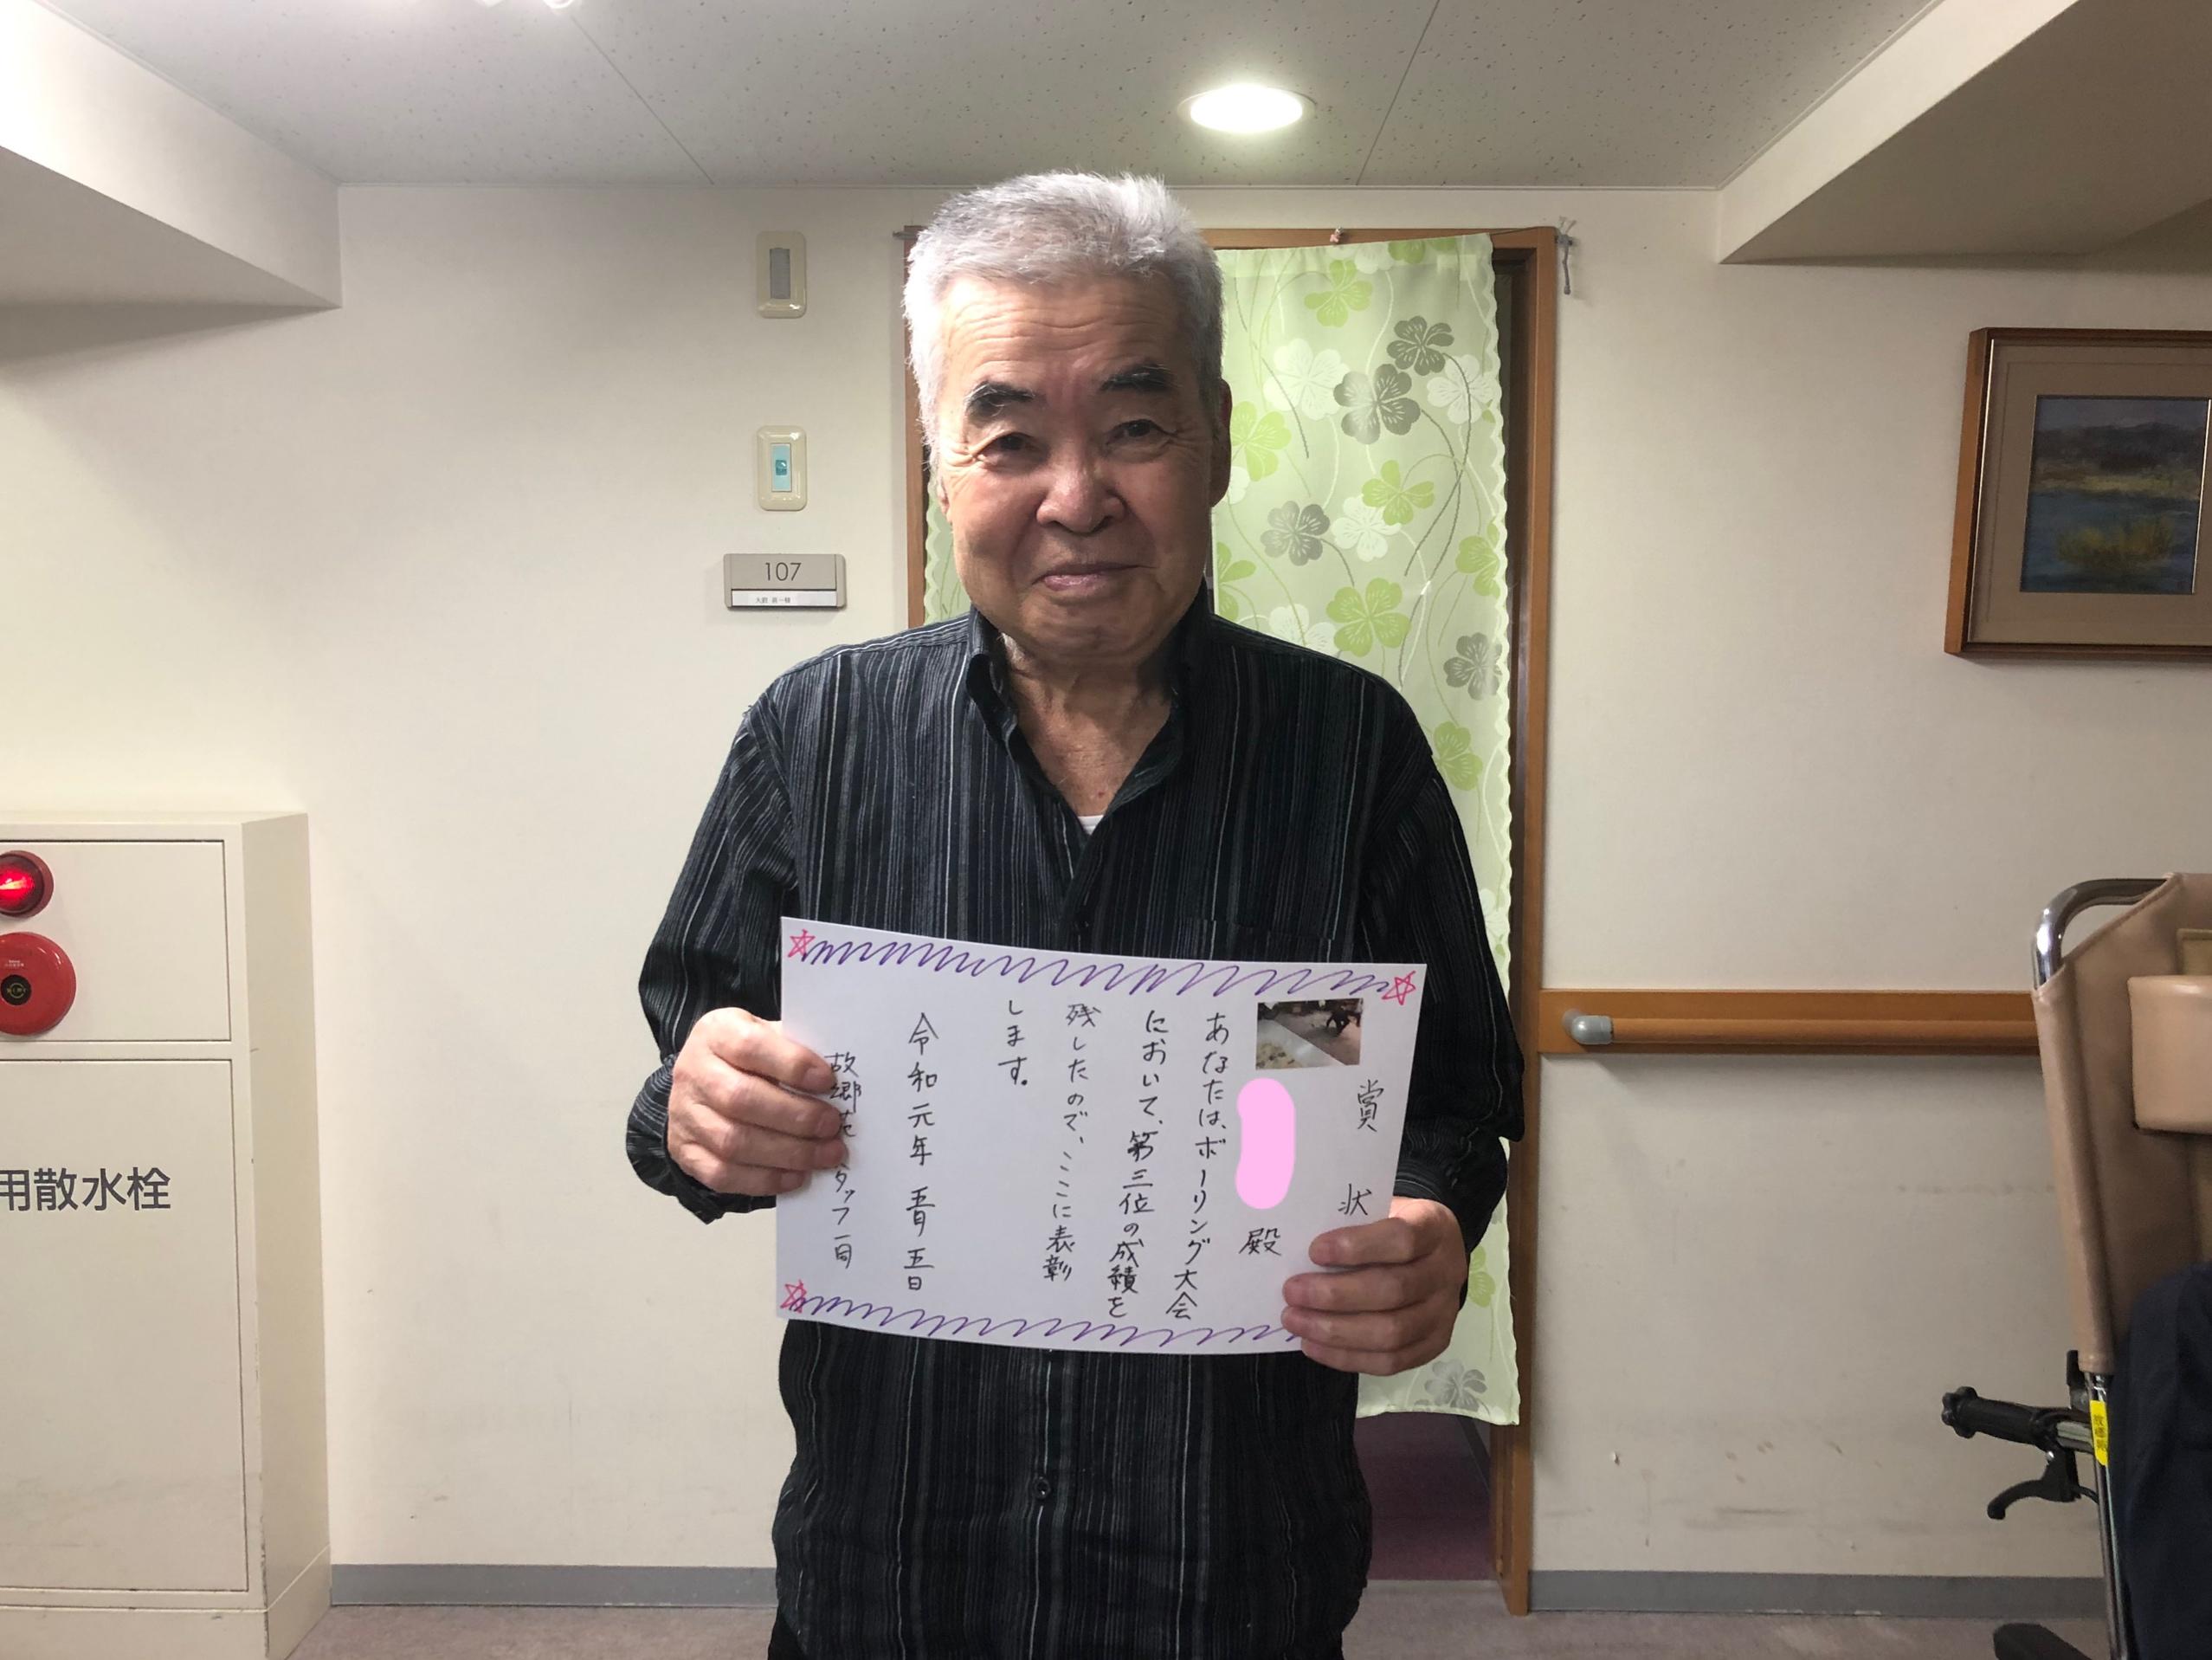 107
用散水栓
賞状
殿
あなたは、ボーリング大会
において、第三位の成績を
残したので、ここに表彰
します。
令和元年 五月 五日
故郷苑 タッフ一同